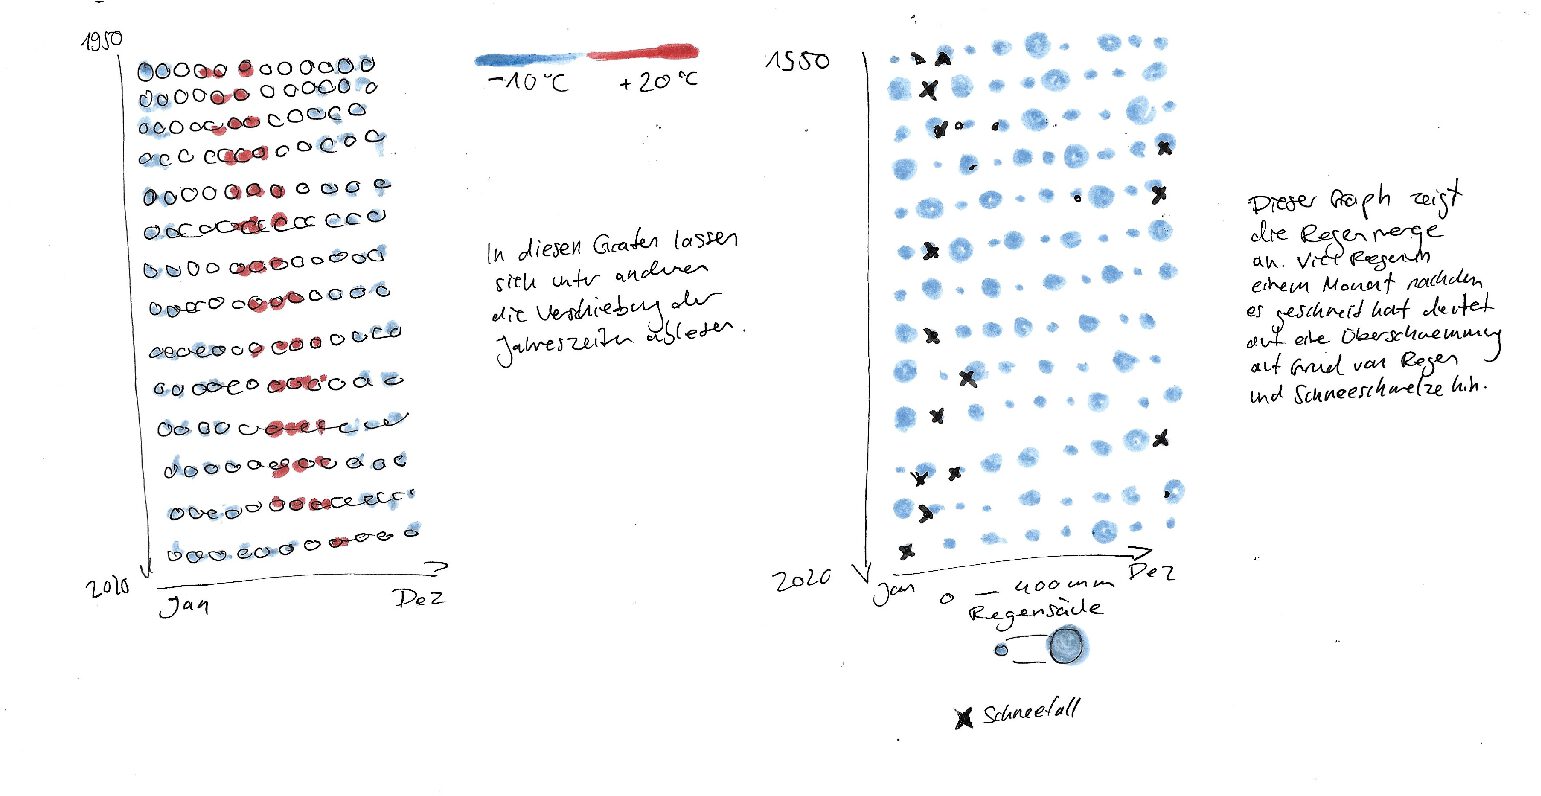 1950
-10°C +20°C
2020
Jan Dez
In diesen Graten lassen
sich unter anderen
die Verschiebung der
Jahreszeiten ablesen.
1950
2020
Jan Dez
0 — 400mm
Regensäule
Schneefall
Dieser Graph zeigt
die Regenmenge
an. Viel Regen in
einem Monat nachdem
es geschneit hat deutet
auf eine Überschwemmung
auf Grund von Regen
und Schneeschmelze hin.